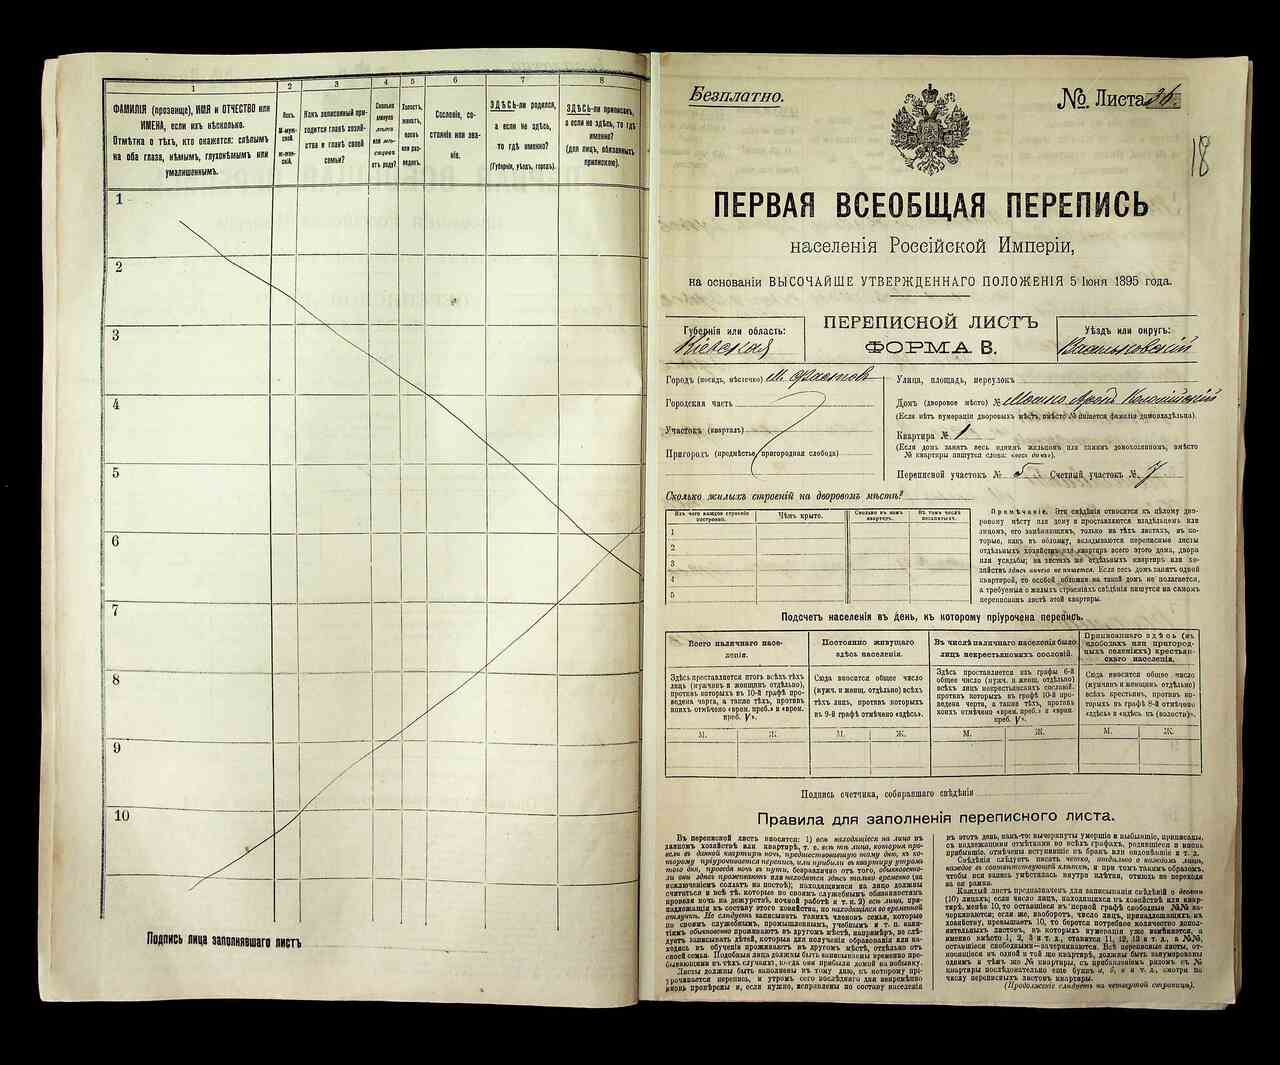 1 2 3 4 5 6 7 8
ФАМИЛІЯ (прозвище), ИМЯ и ОТЧЕСТВО или
ИМЕНА, если ихъ нѣсколько.
Отмѣтка о тѣхъ, кто окажется: слѣпымъ
на оба глаза, нѣмымъ, глухонѣмымъ или
умалишеннымъ.
Полъ.
М-муж-
ской.
ж-жен-
скій.
Какъ записанный при-
ходится главѣ хозяй-
ства и главѣ своей
семьи?
Сколько
минуло
лѣтъ
или мѣ-
сяцевъ
отъ роду?
Холостъ,
женатъ,
вдовъ
или раз-
веденъ.
Сословіе, со-
стояніе или зва-
ніе.
ЗДѢСЬ-ли родился,
а если не здѣсь,
то гдѣ именно?
(Губернія, уѣздъ, городъ).
ЗДѢСЬ-ли приписанъ,
а если не здѣсь, то гдѣ
именно?
(для лицъ, обязанныхъ
припискою).
1
2
3
4
5
6
7
8
9
10
Подпись лица заполнявшаго листъ
Безплатно.
№ Листа 26.
18
ПЕРВАЯ ВСЕОБЩАЯ ПЕРЕПИСЬ
населенія Россійской Имперіи,
на основаніи ВЫСОЧАЙШЕ УТВЕРЖДЕННАГО ПОЛОЖЕНІЯ 5 Іюня 1895 года.
Губернія или область:
Кіевская
ПЕРЕПИСНОЙ ЛИСТЪ
ФОРМА В.
Уѣздъ или округъ:
Васильковскій
Городъ (посадъ, мѣстечко) м. Фастовъ
Городская часть
Участокъ (кварталъ)
Пригородъ (предмѣстье, пригородная слобода)
Улица, площадь, переулокъ
Домъ (дворовое мѣсто) № Мошко
(Если нѣтъ нумераціи дворовыхъ мѣстъ, вмѣсто № пишется фамилія домовладѣльца).
Квартира № 1
(Если домъ занятъ весь однимъ жильцомъ или самимъ домохозяиномъ, вмѣсто
№ квартиры пишутся слова: «весь домъ»).
Переписной участокъ № 5 Счетный участокъ № 7
Сколько жилыхъ строеній на дворовомъ мѣстѣ?
Изъ чего каждое строеніе
построено.
Чѣмъ крыто.
Сколько въ немъ
квартиръ.
Въ томъ числѣ
незанятыхъ.
1
2
3
4
5
Примѣчаніе. Эти свѣдѣнія относятся къ цѣлому дво-
ровому мѣсту или дому и проставляются владѣльцемъ или
лицомъ, его замѣняющимъ, только на тѣхъ листахъ, въ ко-
торые, какъ въ обложку, вкладываются переписные листы
отдѣльныхъ хозяйствъ или квартиръ всего этого дома, двора
или усадьбы; на листахъ же отдѣльныхъ квартиръ или хо-
зяйствъ здѣсь ничего не пишется. Если весь домъ занятъ одной
квартирой, то особой обложки на такой домъ не полагается,
а требуемыя о жилыхъ строеніяхъ свѣдѣнія пишутся на самомъ
переписномъ листѣ этой квартиры.
Подсчетъ населенія въ день, къ которому пріурочена перепись.
Всего наличнаго насе-
ленія.
Здѣсь проставляется итогъ всѣхъ тѣхъ
лицъ (мужчинъ и женщинъ отдѣльно),
противъ которыхъ въ 10-й графѣ про-
ведена черта, а также тѣхъ, противъ
коихъ отмѣчено «врем. преб.» и «врем.
преб. V».
Постоянно живущаго
здѣсь населенія.
Сюда вносится общее число
(мужч. и женщ. отдѣльно) всѣхъ
тѣхъ лицъ, противъ которыхъ
въ 9-й графѣ отмѣчено «здѣсь».
Въ числѣ наличнаго населенія было
лицъ некрестьянскихъ сословій.
Здѣсь проставляется изъ графы 6-й
общее число (мужч. и женщ. отдѣльно)
всѣхъ лицъ некрестьянскихъ сословій,
противъ которыхъ въ графѣ 10-й про-
ведена черта, а также тѣхъ, противъ
коихъ отмѣчено «врем. преб.» и «врем.
преб. V».
Приписаннаго здѣсь (въ
слободахъ или пригород-
ныхъ селеніяхъ) крестьян-
скаго населенія.
Сюда вносится общее число
(мужчинъ и женщинъ отдѣльно)
всѣхъ крестьянъ, противъ ко-
торыхъ въ графѣ 8-й отмѣчено
«здѣсь» и «здѣсь въ (волости)».
М. Ж. М. Ж. М. Ж. М. Ж.
Подпись счетчика, собиравшаго свѣдѣнія
Правила для заполненія переписного листа.
Въ переписной листъ вносятся: 1) всѣ находящіеся на лицо въ
данномъ хозяйствѣ или квартирѣ, т. е. всѣ тѣ лица, которыя про-
вели въ данной квартирѣ ночь, предшествовавшую тому дню, къ ко-
торому пріурочивается перепись, или прибыли въ квартиру утромъ
того дня, проведя ночь въ пути, безразлично отъ того, обыкновен-
но ли они здѣсь проживаютъ или находятся здѣсь только временно (за
исключеніемъ солдатъ на постоѣ); находящимися на лицо должны
считаться и всѣ тѣ, которые по своимъ служебнымъ обязанностямъ
провели ночь на дежурствѣ, ночной работѣ и т. п. 2) всѣ лица, при-
надлежащія къ составу этого хозяйства, но находящіяся во временной
отлучкѣ. Не слѣдуетъ записывать такихъ членовъ семьи, которые
по своимъ служебнымъ, промышленнымъ, учебнымъ и т. п. заня-
тіямъ обыкновенно проживаютъ въ другомъ мѣстѣ, напримѣръ, не слѣ-
дуетъ записывать дѣтей, которыя для полученія образованія или на-
ходясь въ обученіи проживаютъ въ другомъ мѣстѣ, отдѣльно отъ
своей семьи. Подобныя лица должны быть записываемы временно пре-
бывающими въ тѣхъ случаяхъ, когда они прибыли домой на побывку.
Листы должны быть заполнены къ тому дню, къ которому прі-
урочивается перепись, и утромъ сего послѣдняго дня внимательно
вновь провѣрены и, если нужно, исправлены по составу населенія
въ этотъ день, какъ-то: вычеркнуты умершіе и выбывшіе, приписаны,
съ надлежащими отмѣтками во всѣхъ графахъ, родившіеся и вновь
прибывшіе, отмѣчены вступившіе въ бракъ или овдовѣвшіе и т. д.
Свѣдѣнія слѣдуетъ писать четко, отдѣльно о каждомъ лицѣ,
каждое въ соотвѣтствующей клѣткѣ, и при томъ такимъ образомъ,
чтобы вся запись умѣстилась внутри клѣтки, отнюдь не переходя
за ея рамки.
Каждый листъ предназначенъ для записыванія свѣдѣній о десяти
(10) лицахъ; если число лицъ, находящихся въ хозяйствѣ или квар-
тирѣ, менѣе 10, то оставшіеся въ первой графѣ свободные №№ за-
черкиваются; если же, наоборотъ, число лицъ, принадлежащихъ къ
хозяйству, превышаетъ 10, то берется потребное количество допол-
нительныхъ листовъ, въ которыхъ нумерація уже измѣняется, а
именно вмѣсто 1, 2, 3 и т. д., ставится 11, 12, 13 и т. д., а №№,
оставшіеся свободными—зачеркиваются. Всѣ переписные листы, от-
носящіеся къ одной и той же квартирѣ, должны быть занумерованы
однимъ и тѣмъ же № квартиры, съ прибавленіемъ рядомъ съ №
квартиры послѣдовательно еще буквъ а, б, в и т. д., смотря по
числу переписныхъ листовъ квартиры.
(Продолженіе слѣдуетъ на четвертой страницѣ).